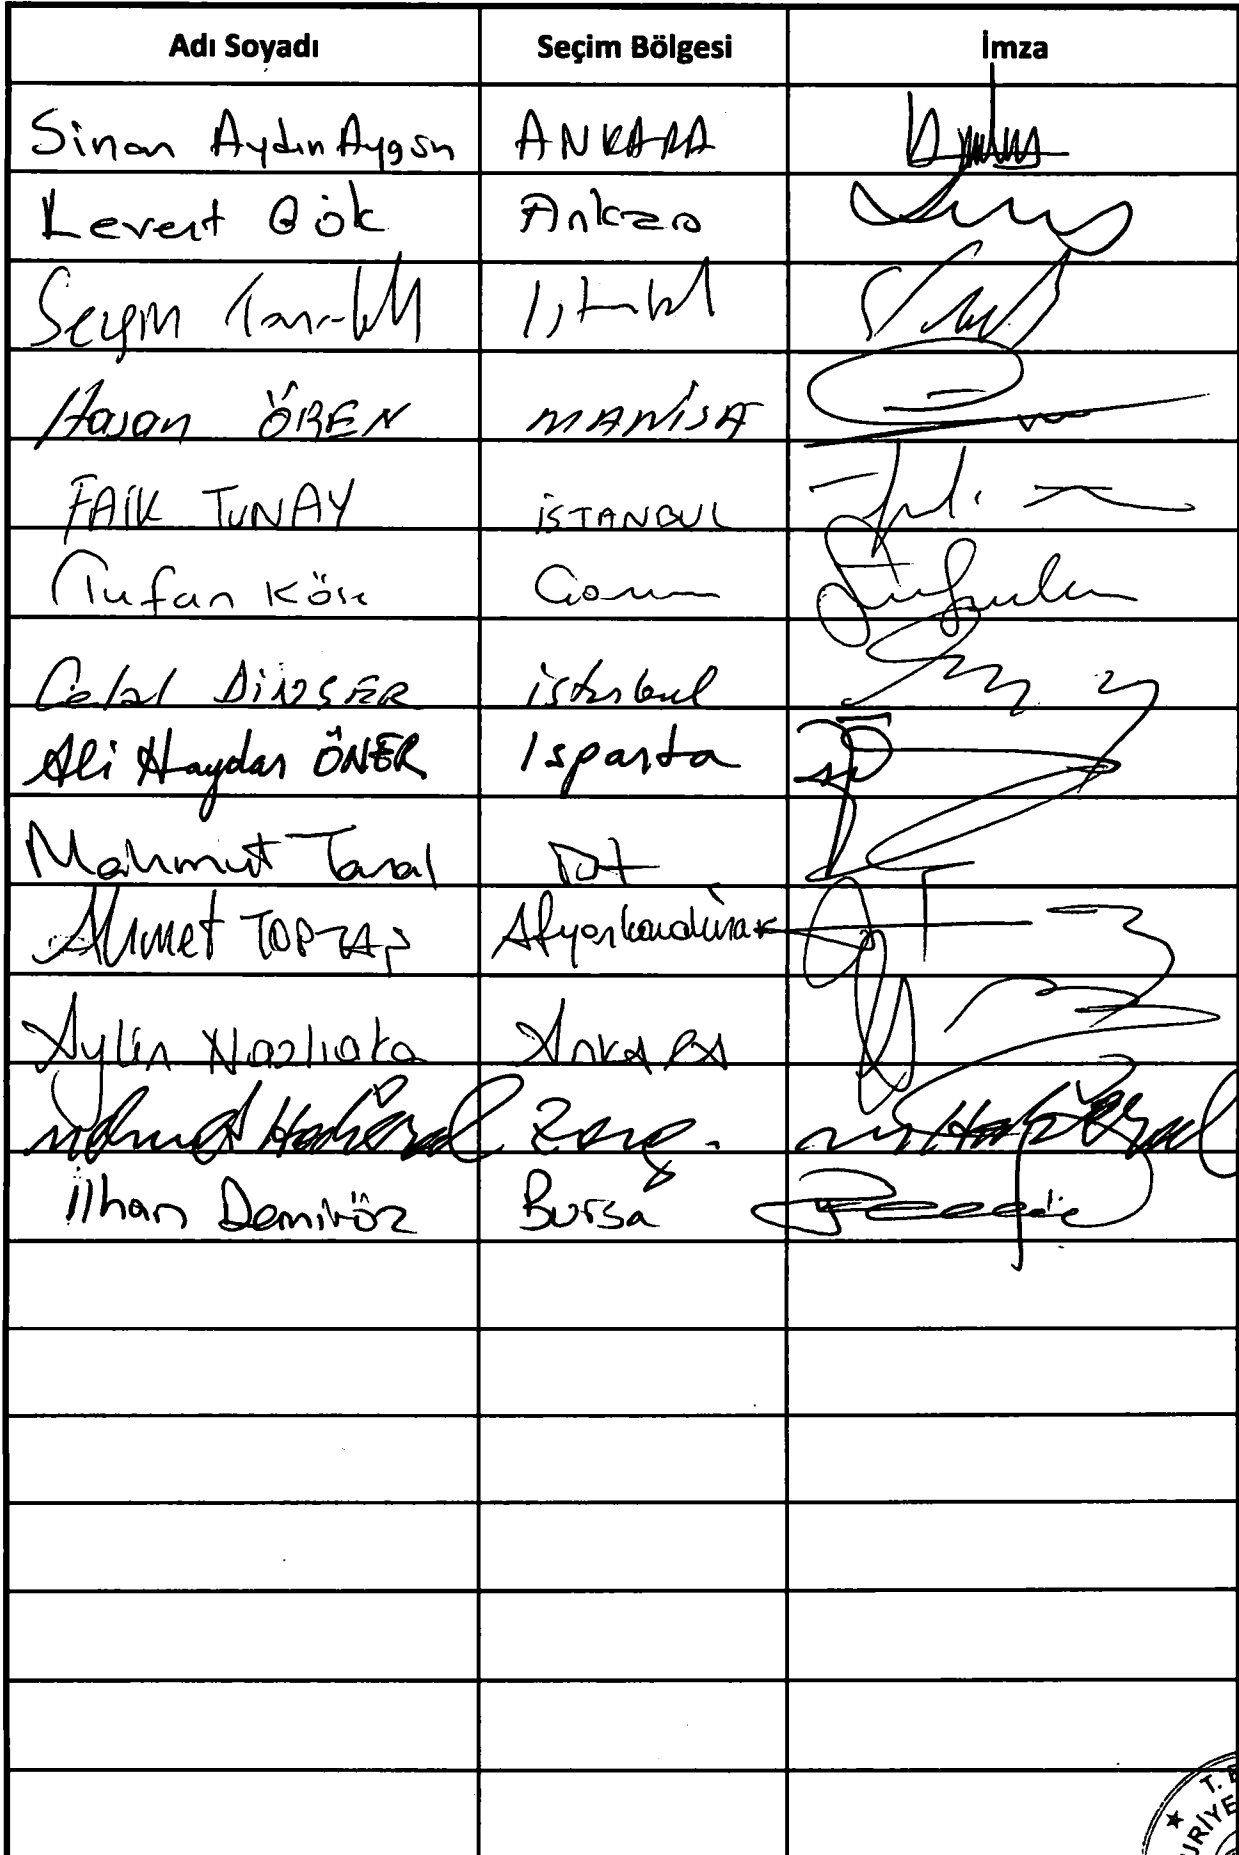 Adı Soyadı Seçim Bölgesi İmza
Sinan Aydın Aygün ANKARA
Levent Gök Ankara
Seyın
Hasan ÖREN MANİSA
FAİK TUNAY İSTANBUL
Tufan Köse Çorum
Celal DİNÇER İstanbul
Ali Haydar ÖNER Isparta
Mahmut Tanal İst
Ahmet TOPTAŞ Afyonkarahisar
Aylin Nazlıaka ANKARA
Mehmet Haberal Zong.
İlhan Demiröz Bursa
T.